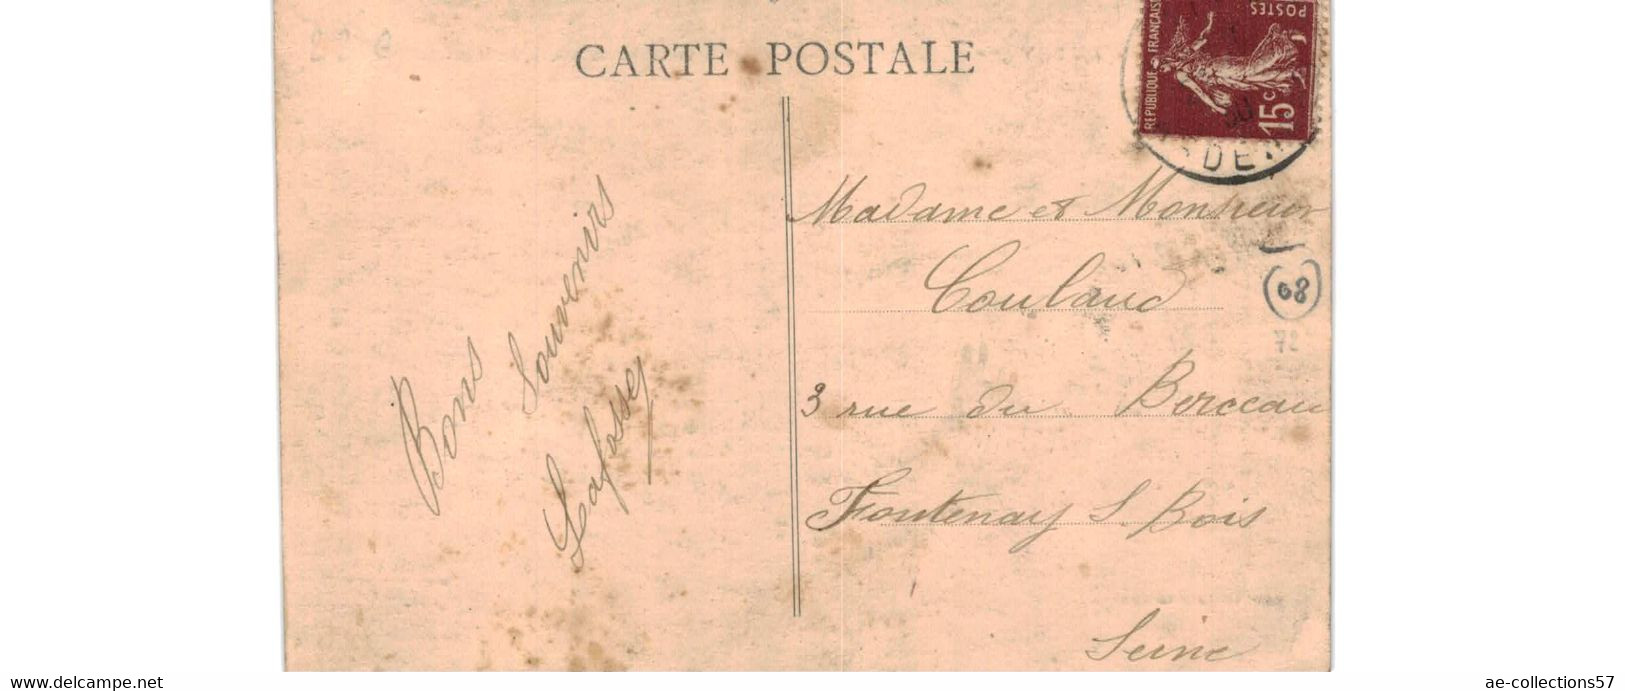 CARTE POSTALE
REPUBLIQUE FRANÇAISE
POSTES
15c
DEN
Bons Souvenirs
Lafosse
Madame et Monsieur
Coulaud
3 rue du Berceau
Fontenay S. Bois
Seine
08
72
www.delcampe.net
ae-collections57